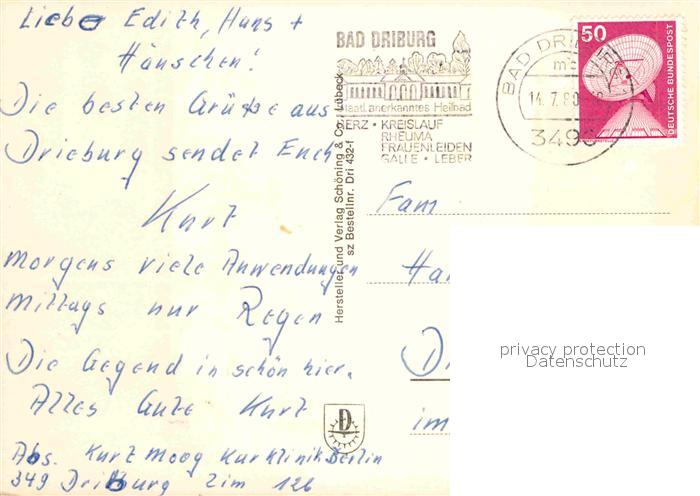 Liebe Edith, Hans +
Hänschen!
Die besten Grüße aus
Drieburg sendet Euch
Kurt
morgens viele Anwendungen
mittags nur Regen
Die Gegend in schön hier.
Alles Gute Kurt
Abs. Kurt Moog Kurklinik Berlin
349 Driburg Zim 126
Hersteller und Verlag Schöning & Co., Lübeck
sz Bestellnr. Dri 432-f
BAD DRIBURG
Staatl. anerkanntes Heilbad
HERZ · KREISLAUF
RHEUMA
FRAUENLEIDEN
GALLE · LEBER
BAD DRI
14.7.80
3490
50
DEUTSCHE BUNDESPOST
Fam
Ha
D
im
D
privacy protection
Datenschutz